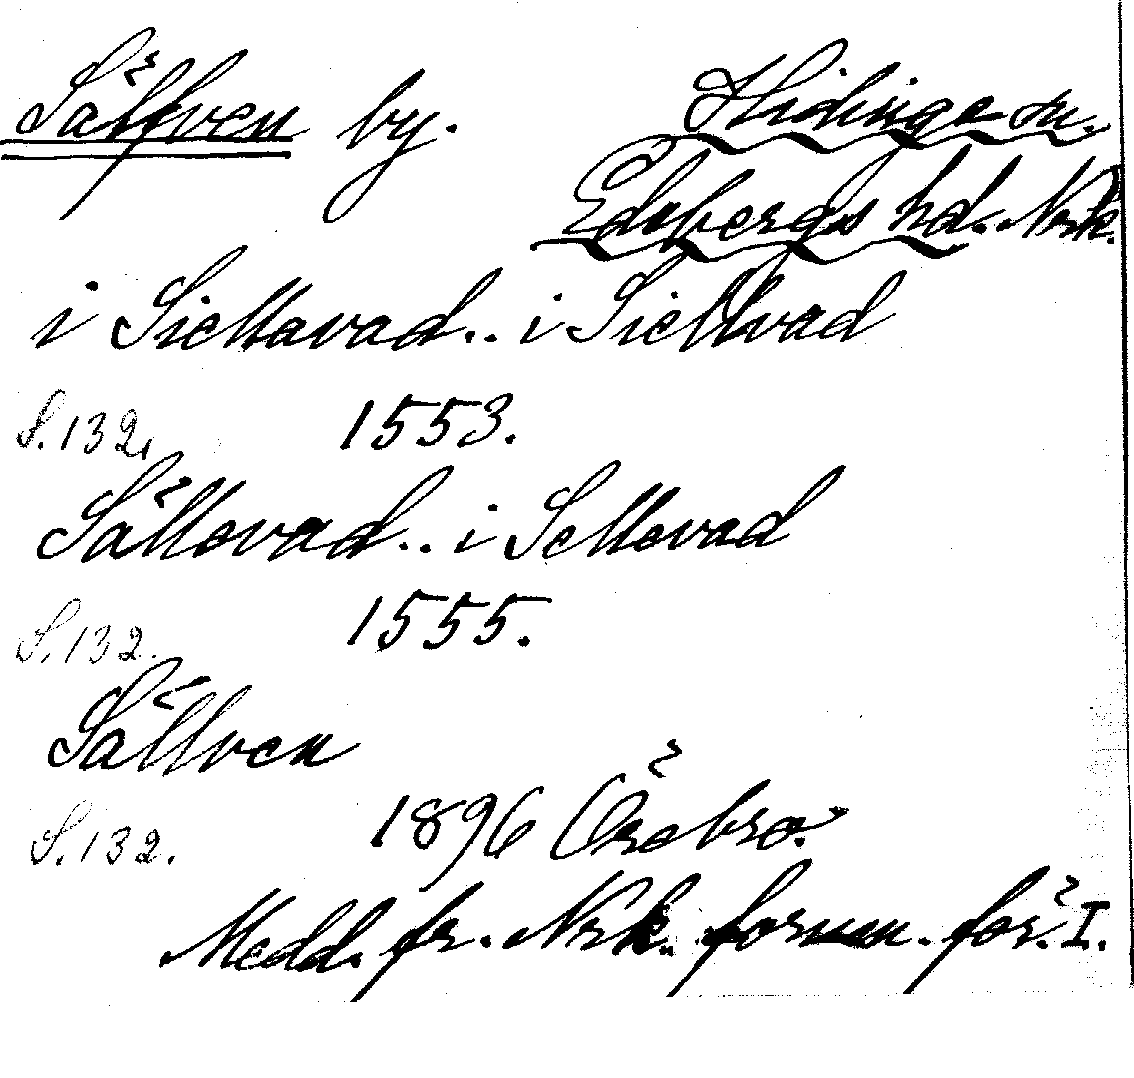 Sälfven by. Hidinge sn.
Edsbergs hd. Nrk.
i Siellavad.. i Siellvad
S.132. 1553.
Sällevad.. i Sellevad
S.132. 1555.
Sällven
S.132. 1896 Örebro.
Medd. fr. Nrk. fornm. för. I.